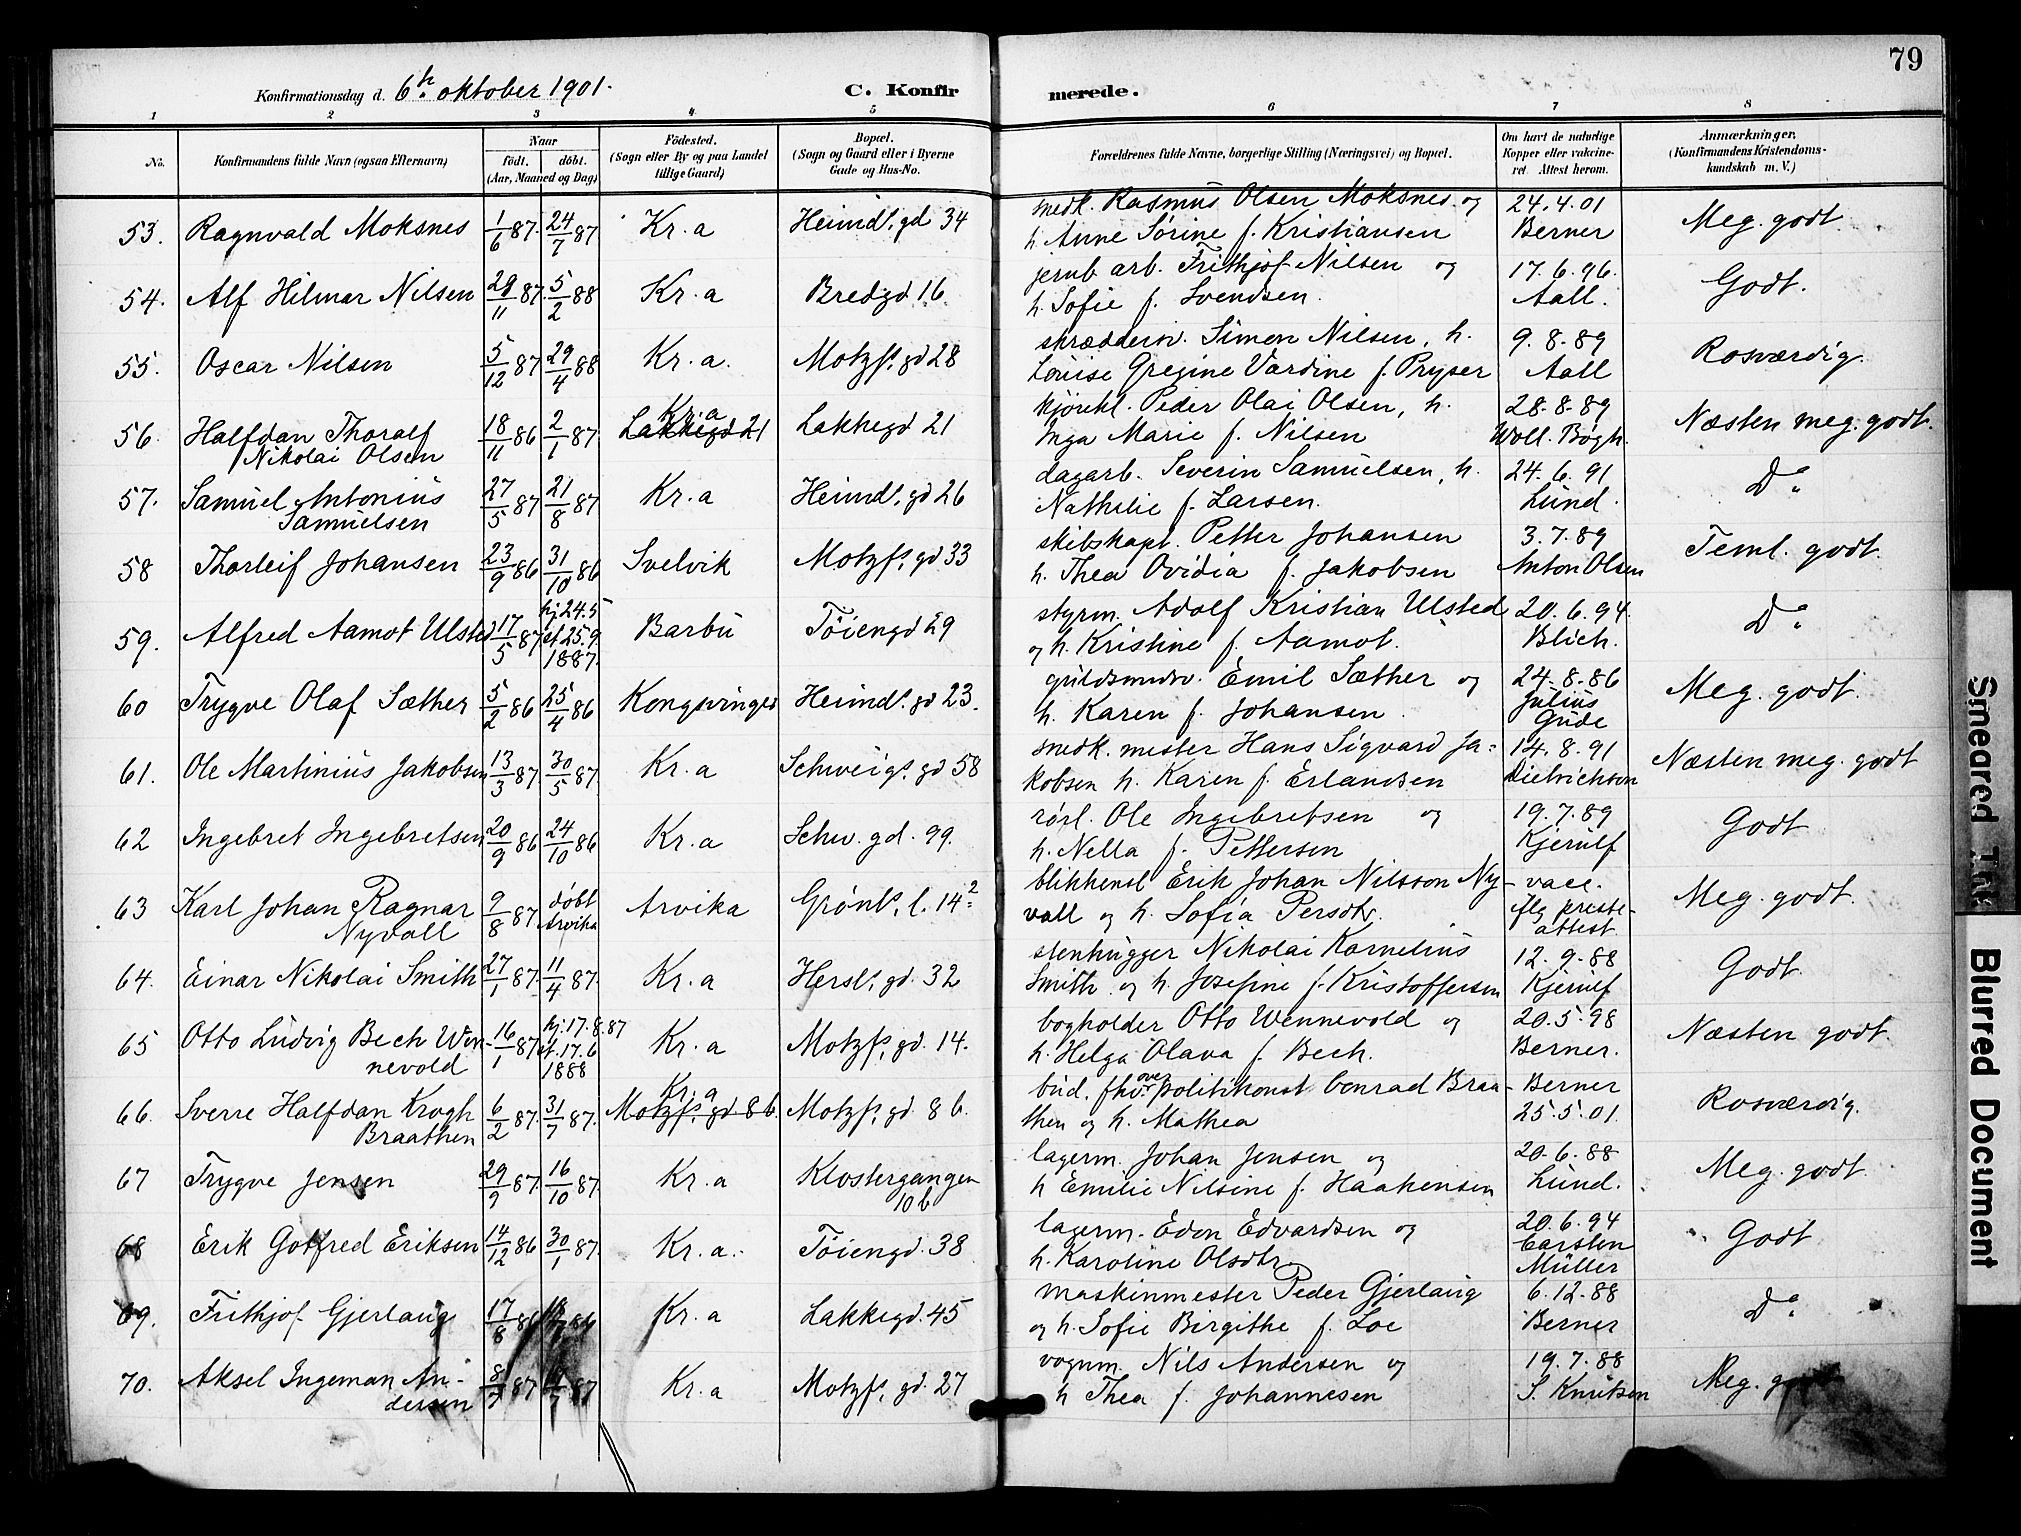 79
Konfirmationsdag d. 6h. oktober 1901.
C. Konfirmerede.
1 2 3 4 5 6 7 8
No.
Konfirmandens fulde Navn (ogsaa Efternavn)
Naar
födt. döbt.
(Aar, Maaned og Dag)
Födested.
(Sogn eller By og paa Landet
tillige Gaard)
Bopæl.
(Sogn og Gaard eller i Byerne
Gade og Hus-No.
Forældrenes fulde Navne, borgerlige Stilling (Næringsvei) og Bopæl.
Om havt de naturlige
Kopper eller vakcine-
ret. Attest herom.
Anmærkninger,
(Konfirmandens Kristendoms-
kundskab m. V.)
53. Ragnvald Moksnes 1/6 87. 24/7 87 Kr.a Heimds. gd 34 snedk. Rasmus Olsen Moksnes og 24.4.01 Meg. godt.
h. Anne Sørine f. Kristiansen Berner
54. Alf Hilmar Nilsen 29/11 87. 5/2 88 Kr.a Bredgd 16. jernb arb. Frithjof Nilsen og 17.6.96. Godt.
h. Sofie f. Svendsen. Aall.
55. Oscar Nilsen 5/12 87 29/4 88 Kr.a. Motzfs. gd 28 skræddersv. Simen Nilsen, h. 9.8.89 Rosværdig.
Louise Gregine Vardine f. Pryser Aall
56. Halfdan Thoralf 18/11 86 2/1 87. Kr.a Lakkegd 21 Lakkegd 21 kjørekl. Peder Olai Olsen, h. 28.8.89 Næsten meg. godt.
Nikolai Olsen Inga Marie f. Nilsen Woll. Bøgh.
57. Samuel Antonius 27/5 87 21/8 87 Kr.a Heimds. gd 26 dagarb. Severin Samuelsen, h. 24.6.91 Do.
Samuelsen Nathilie f. Larsen. Lund.
58 Thorleif Johansen 23/9 86 31/10 86 Svelvik Motzfs. gd 33 skibskapt. Petter Johansen 3.7.89 Teml. godt.
h. Thea Ovidia f. Jakobsen Anton Olsen
59. Alfred Aamot Ulsted 17/5 87 hj. 24.5 st 25.9 1887. Barbu Töiengd 29 styrm. Adolf Kristian Ulsted 20.6.94. Do.
og h. Kristine f. Aamot. Blich.
60 Trygve Olaf Sæther 5/2 86 25/4 86 Kongsvinger Heimds. gd 23. guldsmedsv. Emil Sæther og 24.8.86 Meg. godt.
h. Karen f. Johansen. Julius
Gude
61. Ole Martinius Jakobsen 13/3 87. 30/5 87. Kr.a Schweigs. gd 58 snedk. mester Hans Sigvard Ja- 14.8.91 Næsten meg. godt
kobsen h. Karen f. Erlandsen Dietrichson
62 Ingebret Ingebretsen 20/9 86 24/10 86 Kr.a Schw. gd. 99. rørl. Ole Ingebretsen og 19.7.89 Godt
h. Nella f. Pettersen Kjerulf
63 Karl Johan Ragnar 9/8 87 döbt Arvika Arvika Grønls. l. 14² blikkensl Erik Johan Nilsson Ny- vacc. Meg. godt.
Nyvall vall og h. Sofia Persdtr. iflg preste-
attest
64. Einar Nikolai Smith 27/1 87. 11/4 87. Kr.a Hersls. gd. 32 stenhugger Nikolai Kornelius 12.9.88 Godt.
Smith og h. Josefine f. Kristoffersen Kjerulf
65 Otto Ludvig Bech Wen- 16/1 87 hj. 17.8.87 st. 17.6 1888 Kr.a Motzfs. gd. 14. bogholder Otto Wennevold og 20.5.98 Næsten godt.
nevold h. Helga Olava f. Bech. Berner.
66. Sverre Halfdan Krogh 6/2 87. 31/7 87. Kr.a Motzfs. gd. 8 b. Motzfs. gd 8 b. bud. fhv. over politikonst Conrad Braa- Berner Rosværdig.
Braathen then og h. Mathea 25.5.01.
67 Trygve Jensen 29/9 87. 16/10 87. Kr.a Klostergangen lagerm. Johan Jensen og 20.6.88 Meg. godt.
10 b h Emilie Nilsine f. Haakensen Lund.
68 Erik Gotfred Eriksen 14/12 86 30/1 87. Kr.a. Töiengd. 38 lagerm. Eden Edvardsen og 20.6.94 Godt
h. Karoline Olsdtr. Carsten
Müller
69. Frithjof Gjerlaug 17/8 86 Kr.a Lakkegd. 45 maskinmester Peder Gjerlaug 6.12.88 Do.
og h. Sofie Birgithe f. Loe Berner
70. Aksel Ingeman An- 87 87 Kr.a Motzfs. gd. 27 vognm. Nils Andersen og 19.7.88 Meg. godt
dersen h Thea f. Johannesen S. Knutsen
Smeared
Blurred Document